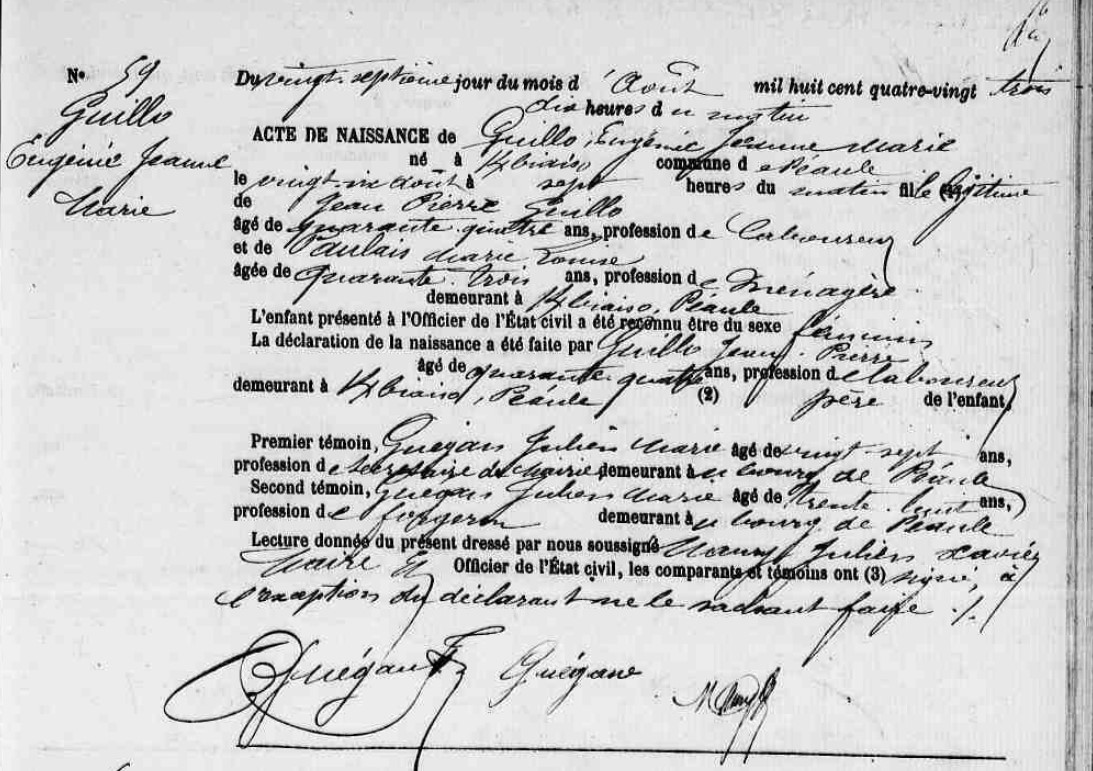 N° 59
Guillo
Eugénie Jeanne
Marie
Du vingt-septième jour du mois d'Août mil huit cent quatre-vingt trois
dix heures du matin
ACTE DE NAISSANCE de Guillo, Eugénie Jeanne Marie
né à commune de Péaule
le vingt six août à sept heures du matin fille légitime
de Jean Pierre Guillo
âgé de quarante-quatre ans, profession de Laboureur
et de Paulais Marie Louise
âgée de quarante-trois ans, profession de Ménagère
demeurant à Péaule
L'enfant présenté à l'Officier de l'État civil a été reconnu être du sexe féminin
La déclaration de la naissance a été faite par Guillo Jean-Pierre
âgé de quarante-quatre ans, profession de laboureur
demeurant à Péaule (2) père de l'enfant,
Premier témoin, Guégan Julien Marie âgé de vingt-sept ans,
profession de secrétaire de Mairie, demeurant au bourg de Péaule
Second témoin, Guégan Julien Marie âgé de trente-huit ans,
profession de forgeron demeurant au bourg de Péaule
Lecture donnée du présent dressé par nous soussigné Julien Xavier
Maire Officier de l'État civil, les comparants et témoins ont (3) signé, à
l'exception du déclarant ne le sachant faire ./.
Guégan Guégan